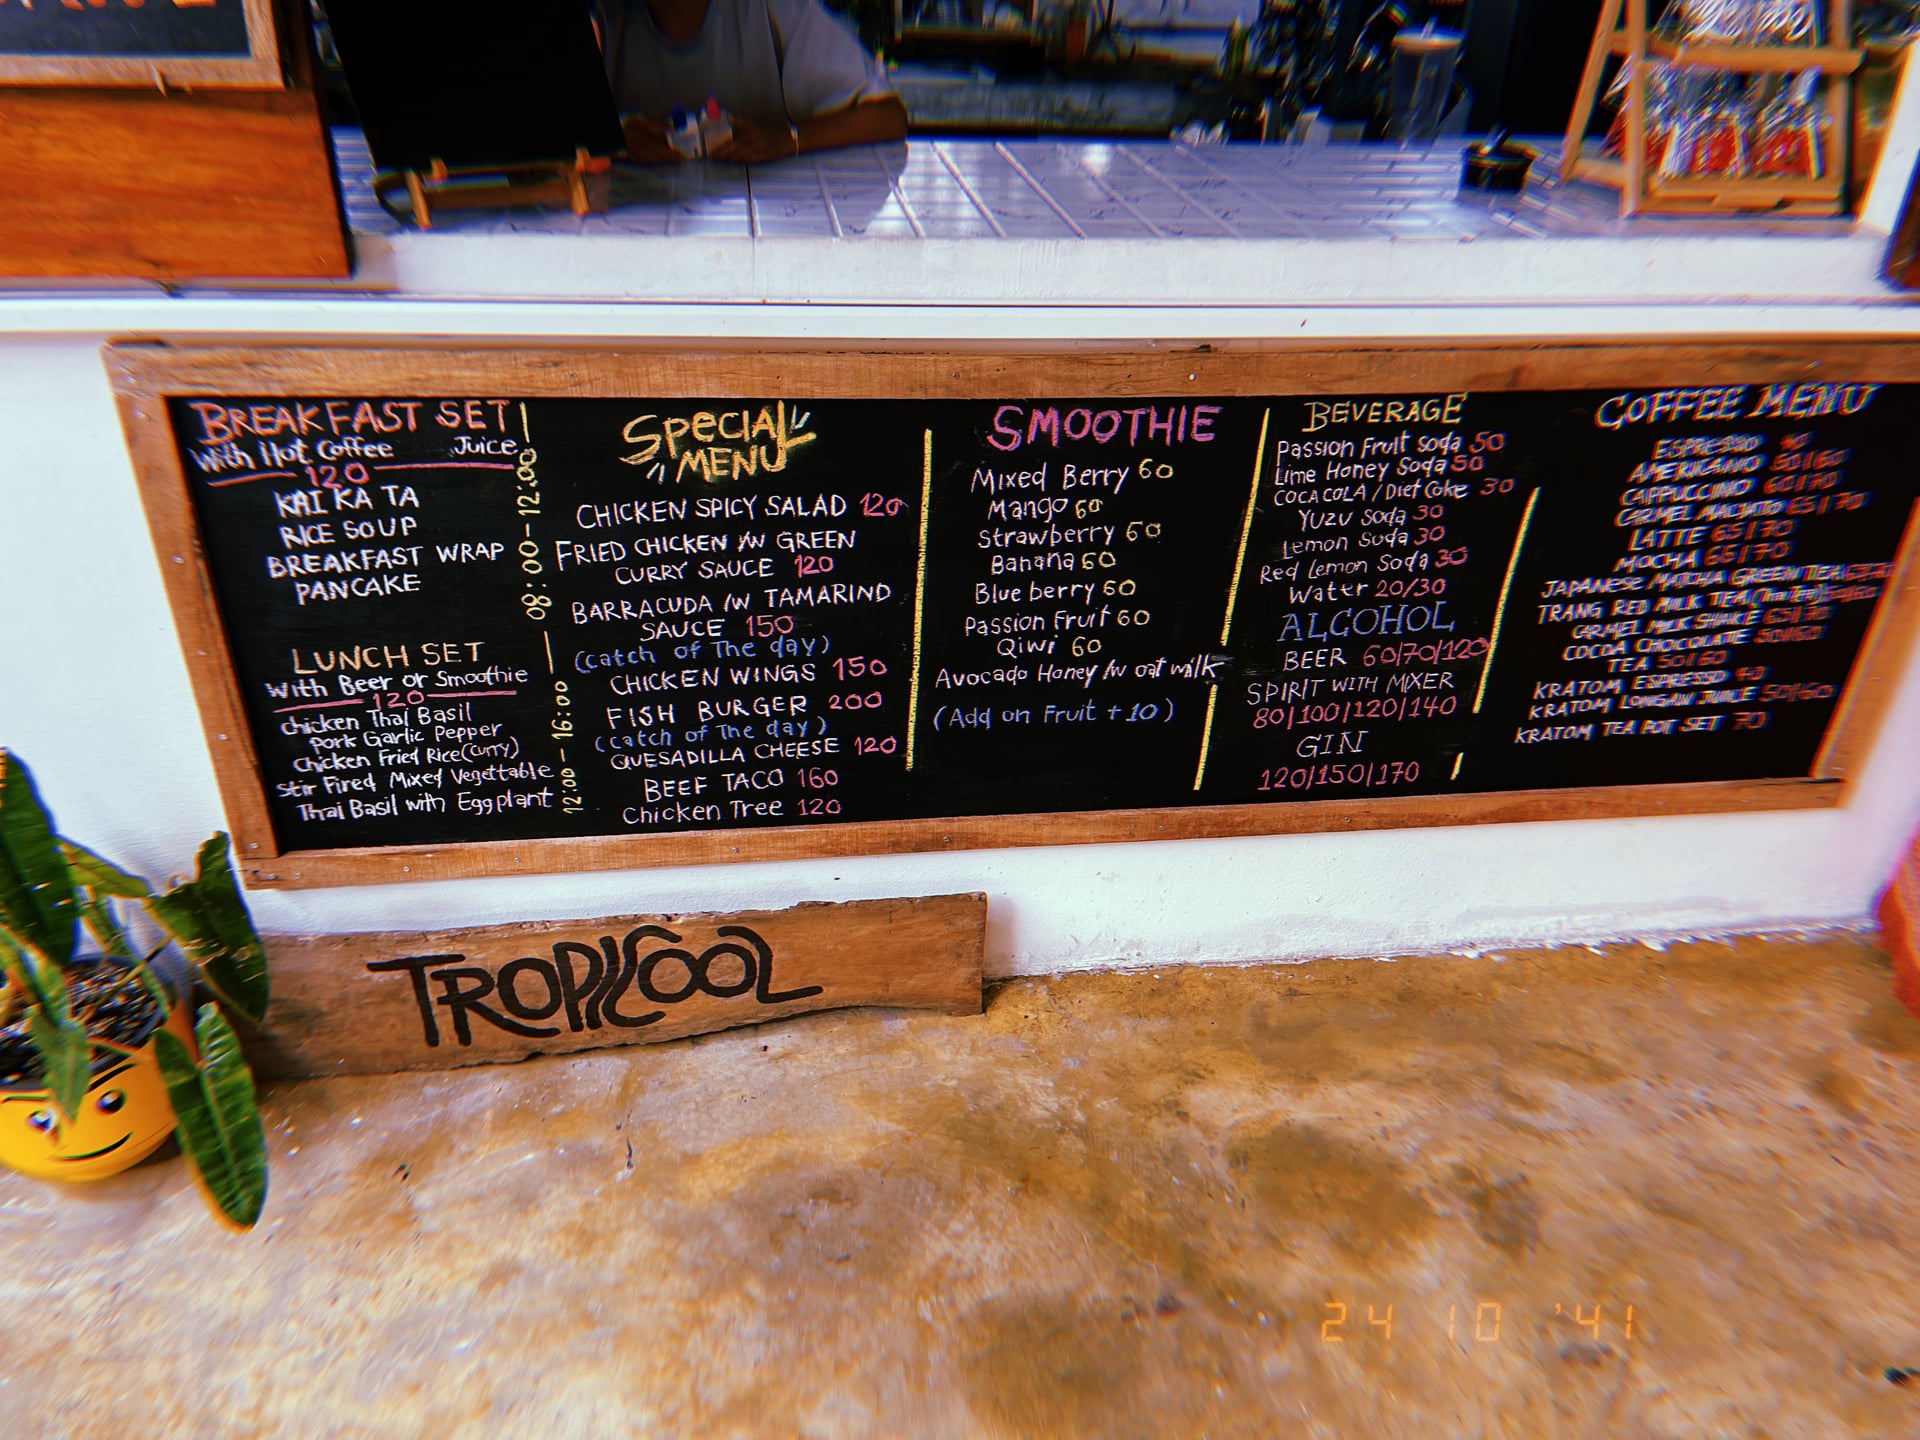 BREAKFAST SET
With Hot Coffee Juice
120
KAI KA TA
RICE SOUP
BREAKFAST WRAP
PANCAKE
08:00-12:00
LUNCH SET
With Beer or Smoothie
120
chicken Thai Basil
Pork Garlic Pepper
Chicken Fried Rice(Curry)
Stir Fired Mixed Vegettable
Thai Basil with Eggplant
12:00-16:00
SPECIAL
MENU
CHICKEN SPICY SALAD 120
FRIED CHICKEN /W GREEN
CURRY SAUCE 120
BARRACUDA /W TAMARIND
SAUCE 150
(catch of The day)
CHICKEN WINGS 150
FISH BURGER 200
(catch of The day)
QUESADILLA CHEESE 120
BEEF TACO 160
Chicken Tree 120
SMOOTHIE
Mixed Berry 60
Mango 60
Strawberry 60
Banana 60
Blueberry 60
Passion Fruit 60
Qiwi 60
Avocado Honey /w oat milk
(Add on Fruit +10)
BEVERAGE
Passion Fruit Soda 50
Lime Honey Soda 50
COCA COLA / Diet Coke 30
Yuzu Soda 30
Lemon Soda 30
Red Lemon Soda 30
Water 20/30
ALCOHOL
BEER 60/70/120
SPIRIT WITH MIXER
80/100/120/140
GIN
120/150/170
COFFEE MENU
ESPRESSO 40
AMERICANO 50/60
CAPPUCCINO 60/70
CARMEL MACIATO 65/70
LATTE 65/70
MOCHA 65/70
JAPANESE MATCHA GREEN TEA
TRANG RED MILK TEA (Thai Tea) 50/60
CARMEL MILK SHAKE 65/70
COCOA CHOCOLATE 50/60
TEA 50/60
KRATOM ESPRESSO 40
KRATOM LONGAN JUICE 50/60
KRATOM TEA POT SET 70
TROPICOOL
24 10 '41